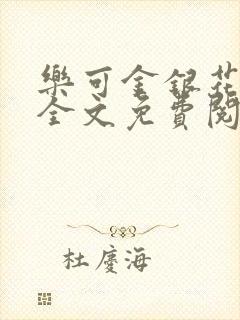 樂可金銀花
全文免費閱
杜慶海